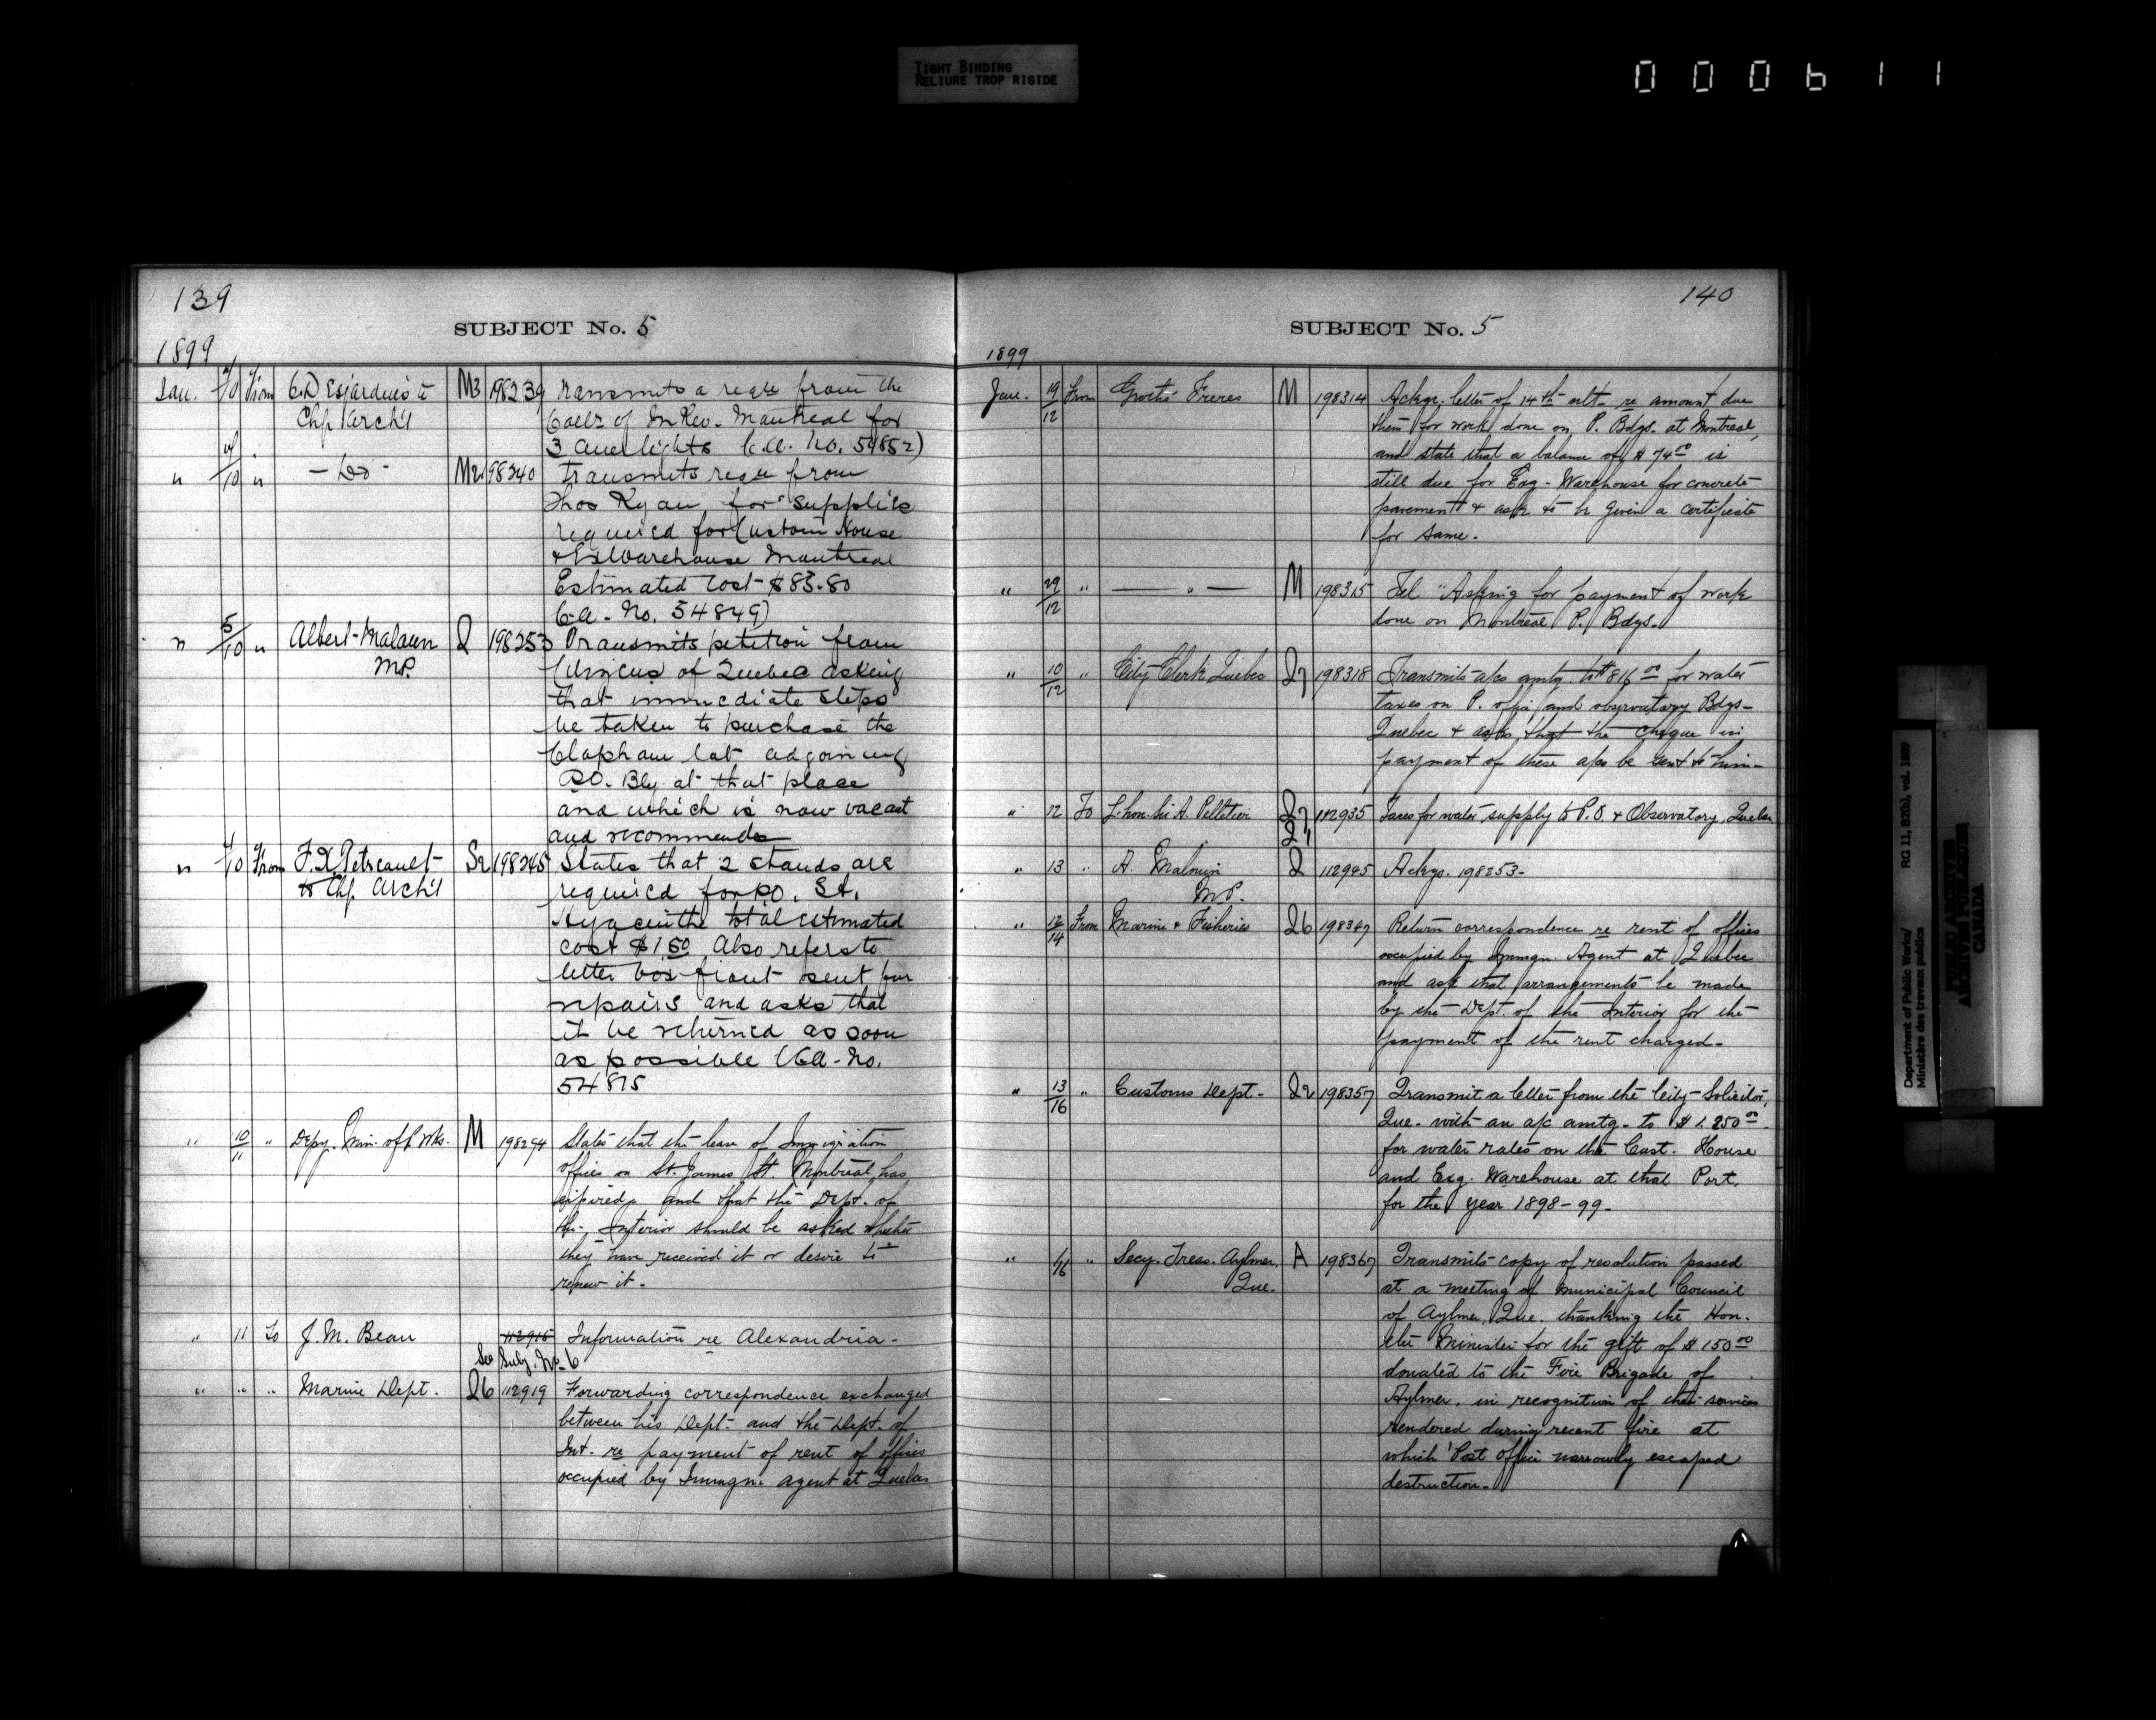 TIGHT BINDING
RELIURE TROP RIGIDE
000611
139
SUBJECT No. 5
1899
Jan. 10 From C. Desjardins to M3 198239 Transmits a reqn from the
Chf Arch't Collr of In Rev. Montreal for
3 lights C.A. No. 54852)
" 10 " - Do - M2 198240 Transmits reqn from
Thos Ryan, for supplies
required for Custom House
& Ex Warehouse Montreal
Estimated cost $83.80
C.A. No. 54849)
" 5/10 " Albert Malouin Q 198253 Transmits petition from
M.P. Citizens of Quebec asking
that immediate steps
be taken to purchase the
Clapham lot adjoining
P.O. Bdg at that place
and which is now vacant
and recommends
" 10 From F.X. Petreault S2 198245 States that 2 stands are
to Chf. Arch't required for P.O. St.
Hyacinthe total estimated
cost $1.50 Also refers to
letter box front sent for
repairs and asks that
it be returned as soon
as possible (C.A. No.
54815
" 10/11 " Depy. Min. of P. Wks. M 198294 States that the lease of Immigration
offices on St. James St. Montreal, has
expired, and that the Dept. of
the Interior should be asked whether
they have received it or desire to
renew it.
" 11 To J. M. Bean 112915 Information re Alexandria -
See Subj. No. 6
" " " Marine Dept. Q6 112919 Forwarding correspondence exchanged
between his Dept. and the Dept. of
Int. re payment of rent of offices
occupied by Immgn. agent at Quebec
140
SUBJECT No. 5
1899
Jan. 19/12 From Grothé Freres M 198314 Ackgs. letter of 14th ult. re amount due
them for work done on P. Bdgs. at Montreal,
and state that a balance of $74 is
still due for Exg. Warehouse for concrete
pavement & ask to be given a certificate
for same.
" 29/12 " — " — M 198315 Tel "Asking for payment of work
done on Montreal P. Bdgs.
" 10/12 " City Clerk Quebec Q7 198318 Transmits a/cs amtg. to $816 00 for water
taxes on P. office and observatory Bdgs-
Quebec & asks that the cheque in
payment of these a/cs be sent to him-
" 12 To L'hon. Sir A. Pelletier Q7 112935 Taxes for water supply to P.O. & Observatory, Quebec
Q11
" 13 " A. Malouin Q 112945 Ackgs. 198253-
M.P.
" 12/14 From Marine & Fisheries Q6 198347 Return correspondence re rent of offices
occupied by Immgn. Agent at Quebec
and ask that arrangements be made
by the Dept. of the Interior for the
payment of the rent charged-
" 13/16 " Customs Dept. Q2 198357 Transmit a letter from the City Solicitor,
Que. with an a/c amtg. to $1,250 00
for water rates on the Cust. House
and Exg. Warehouse at that Port,
for the year 1898-99-
" 16 " Secy. Treas. Aylmer, A 198367 Transmits copy of resolution passed
Que. at a meeting of Municipal Council
of Aylmer, Que. thanking the Hon.
the Minister for the gift of $150 00
donated to the Fire Brigade of
Aylmer, in recognition of their services
rendered during recent fire at
which Post Office narrowly escaped
destruction-
Department of Public Works/ RG 11, B2(b), vol. 1889
Ministère des travaux publics
PUBLIC ARCHIVES
ARCHIVES PUBLIQUES
CANADA